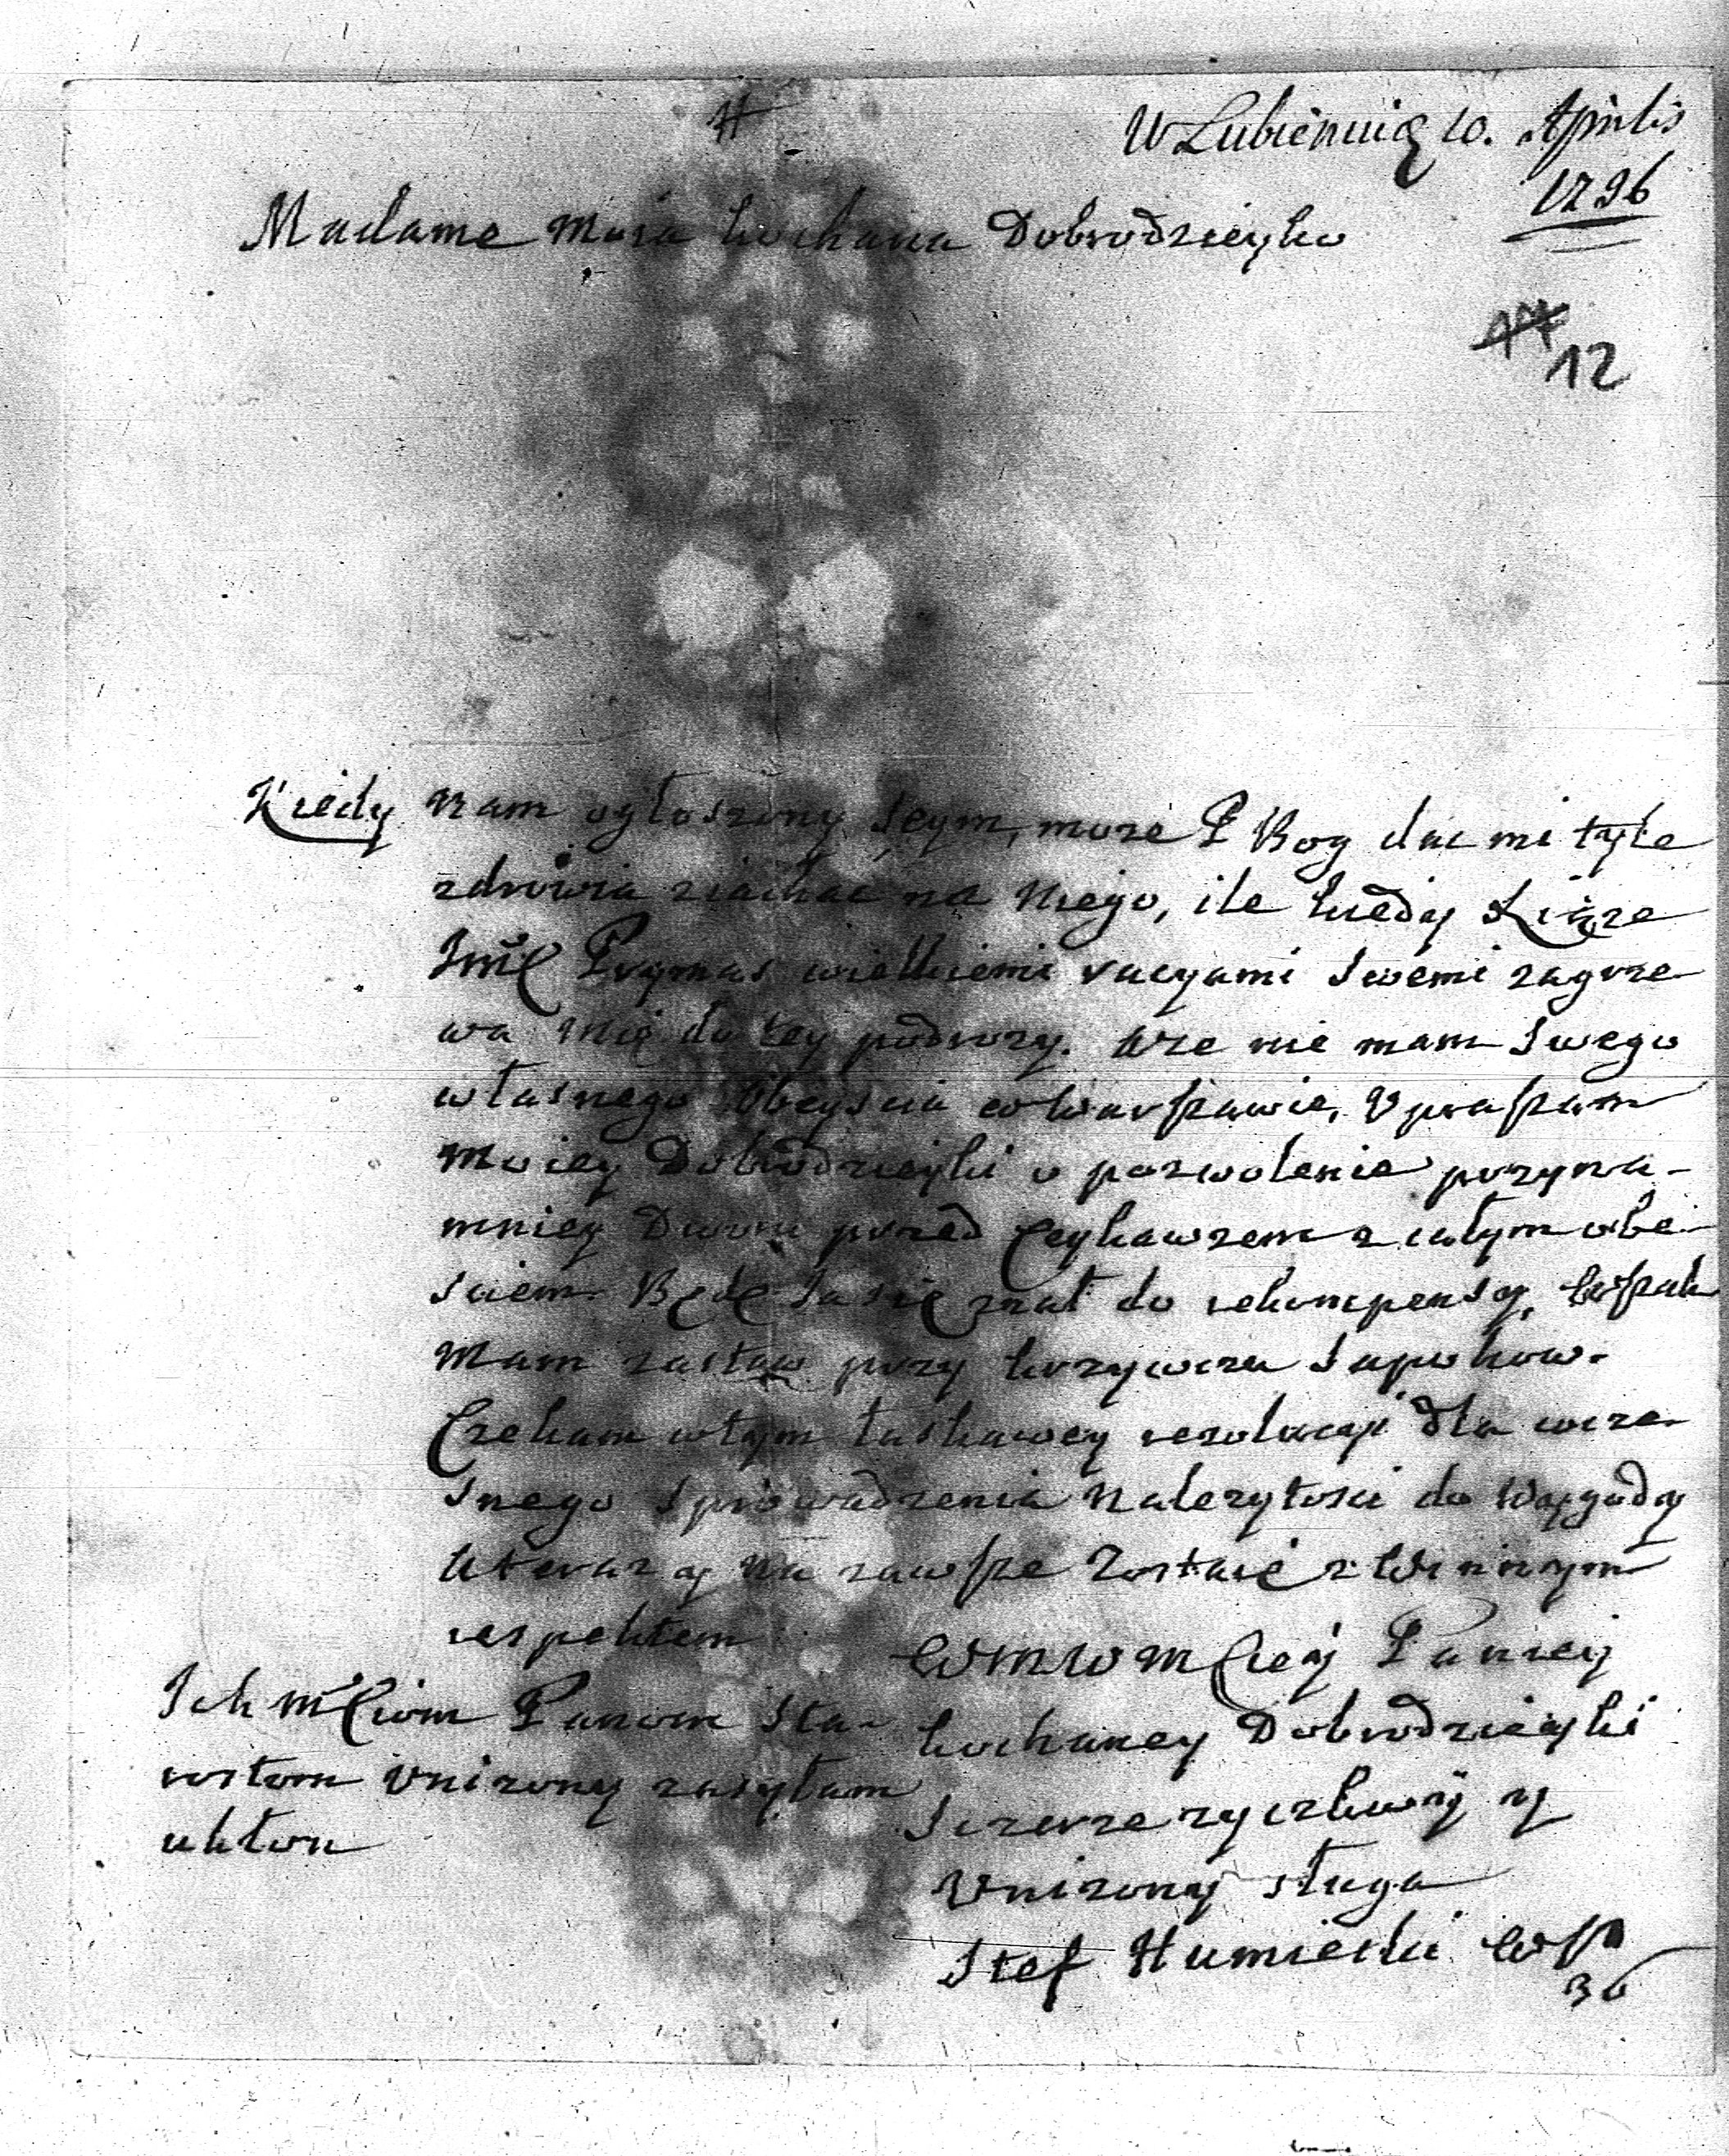 #
W Lubieniu 10. Aprilis
1726
Madame Moia kochana Dobrodzieyko
12
Kiedy nam ogłoszony Seym, może P Bog dac mi tyle
zdrowia ziachać na niego, ile kiedy Xiąze
Jmć Prymas wielkiemi racyami swemi zagrze
wa mię do tey podrozy. Wze nie mam swego
własnego Obeyscia w Warszawie, Vpraszam
Moiey Dobrodzieyki o pozwolenie przyna-
mniey Dworu przed Ceykawzem z całym obe-
sciem. Będę Ja się znał do rekompensy, wszak
Mam zastaw przy krzywcza Sapuhow.
Czekam w tym łaskawey rezolucyi dla wcze-
snego sprowadzenia nalezytosci do Wygody
A teraz y na zawsze Zostaię z Winnym
respektem
WMWMsciey Paniey
kochaney Dobrodzieyki
Szczerze zyczliwy y
Vnizony sługa
Stef Humiecki WP
36
Ich Msciom Panom Sta-
rostom Vnizony zasyłam
ukłon